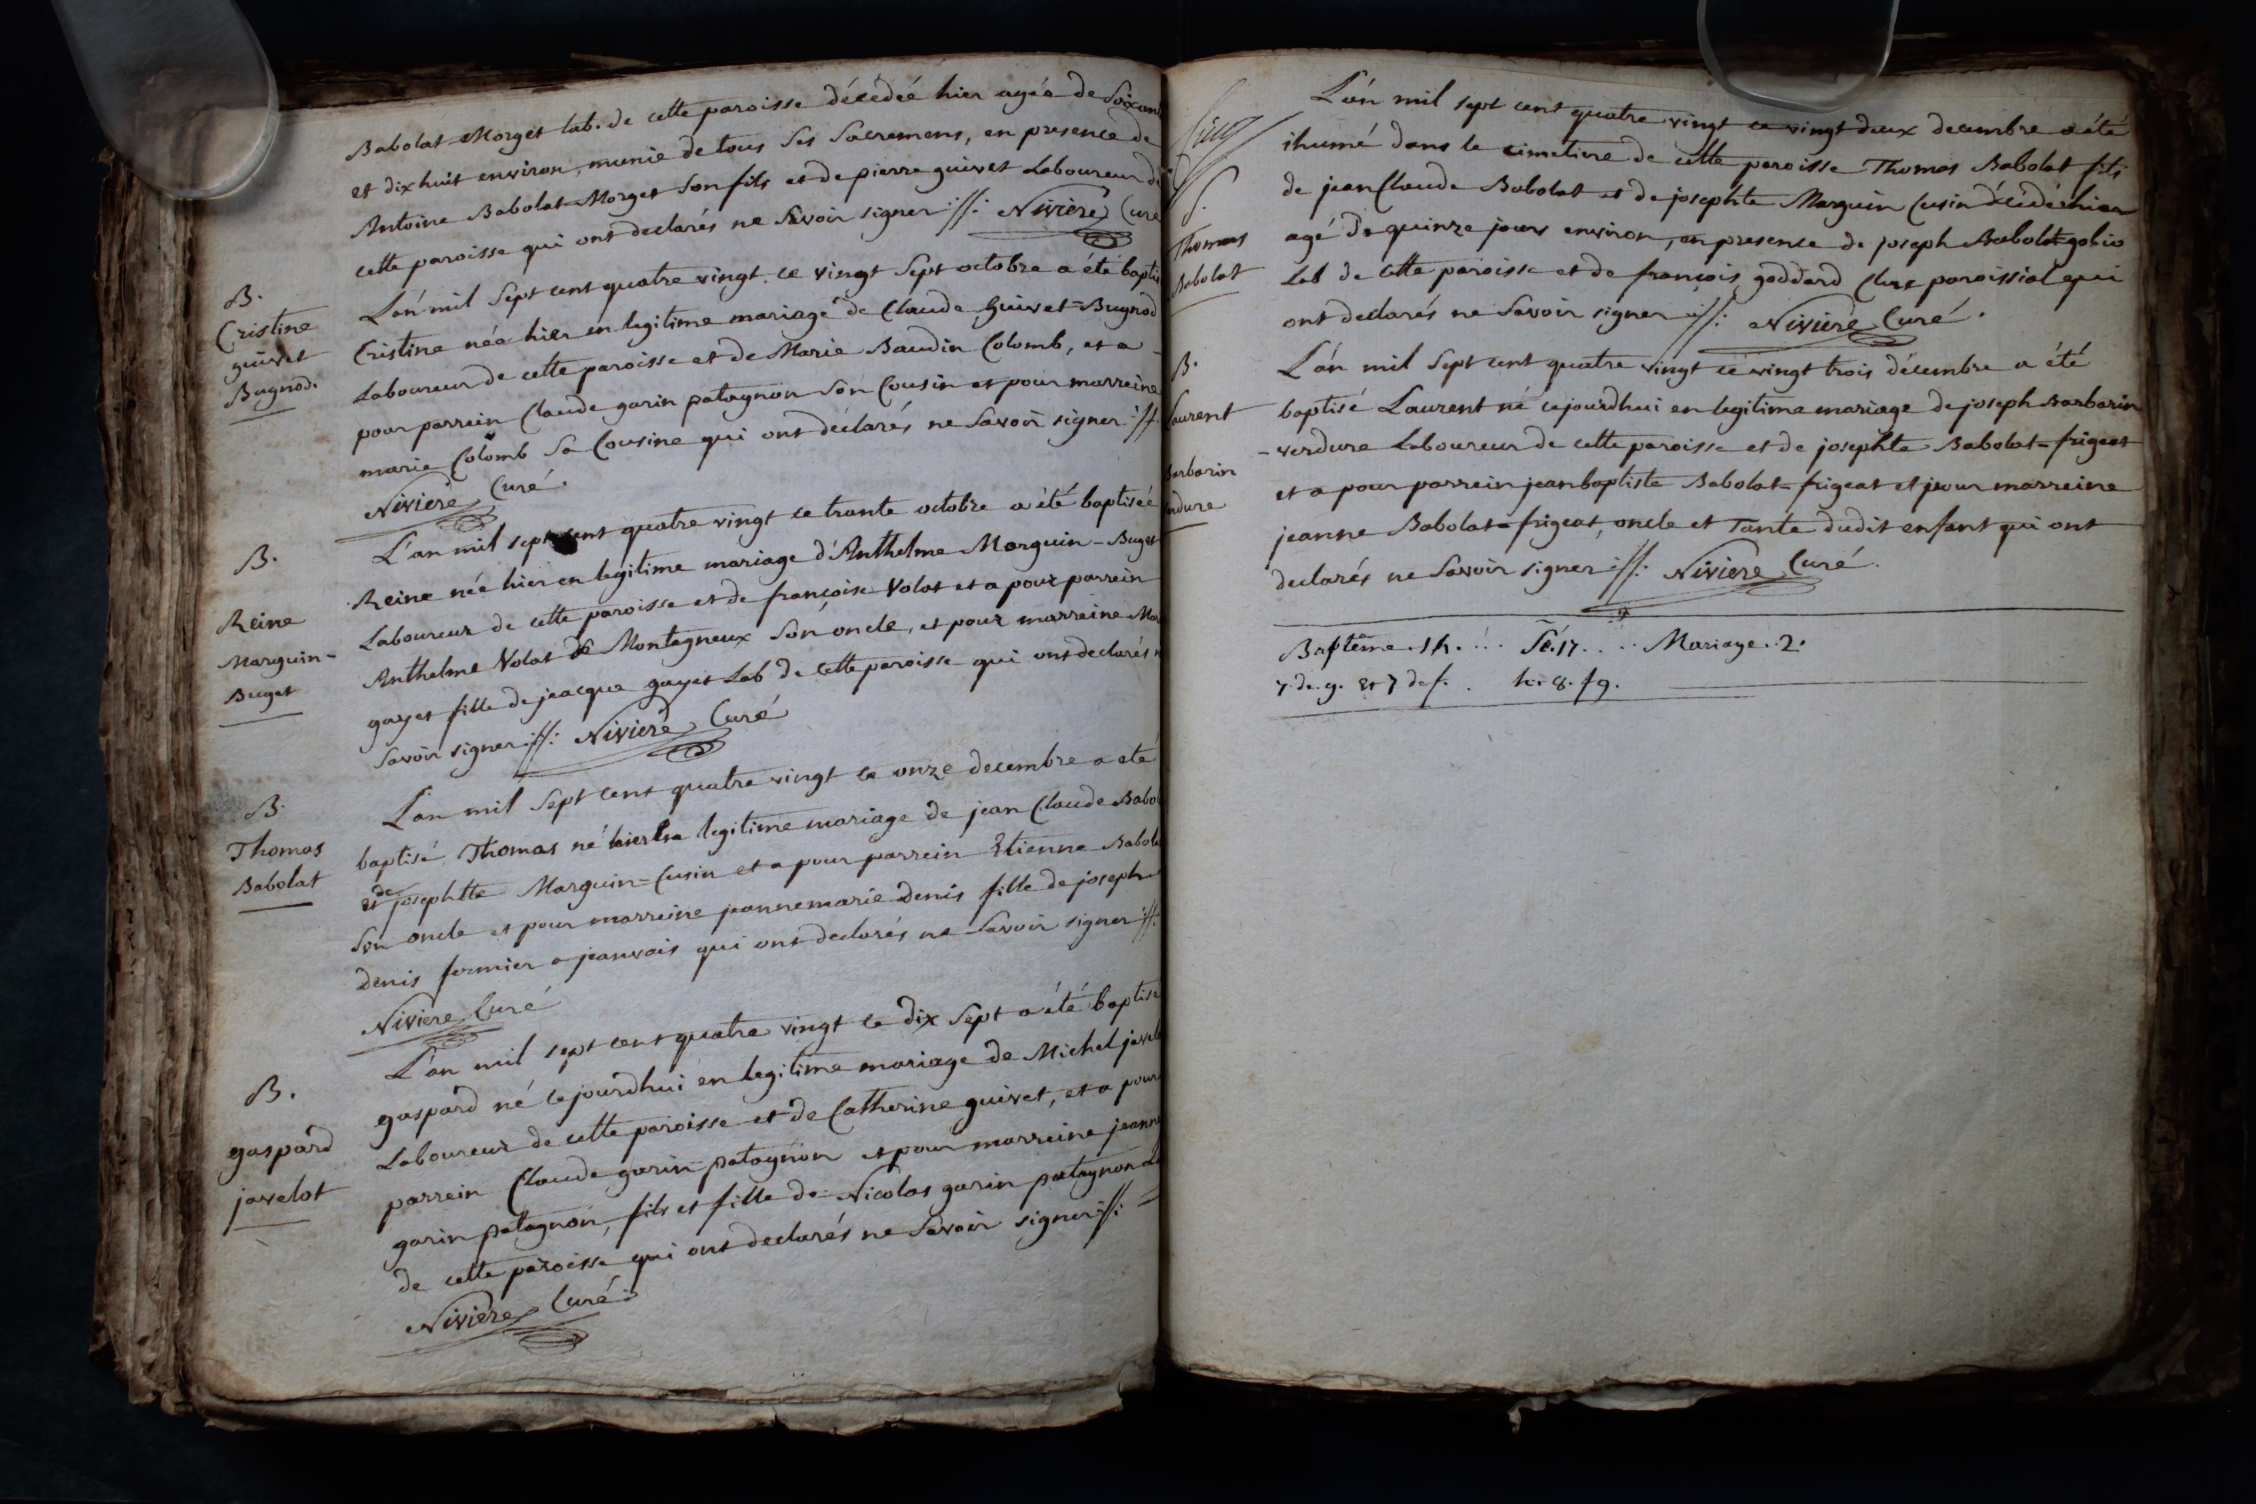 Babolat-Morget lab. de cette paroisse décédée hier agée de Soixante
et dix huit environ, munie de tous Ses Sacremens, en presence de
Antoine Babolat-Morget Son fils et de pierre guivet Laboureur de
cette paroisse qui ont declarés ne Savoir signer ://: Nivière Curé
B.
Cristine
guivet
Bugnod.
L'an mil Sept cent quatre vingt ce vingt Sept octobre a été baptisé
Cristine née hier en legitime mariage de Claude Guivet=Bugnod
Laboureur de cette paroisse et de Marie Baudin Colomb, et a
pour parrein Claude garin patagnon Son Cousin et pour marreine
marie Colomb Sa Cousine qui ont déclarés ne Savoir signer ://.
Nivière Curé.
B.
Reine
Marguin-
Buget
L'an mil sept cent quatre vingt ce trante octobre a été baptisée
Reine née hier en legitime mariage d'Anthelme Marguin-Buget
Laboureur de cette paroisse et de françoise Volat et a pour parrein
Anthelme Volat de Montagneux Son oncle, et pour marreine
gayet fille de jeacque gayet Lab de Cette paroisse qui ont declarés
Savoir signer ://: Nivière Curé
B.
Thomas
Babolat
L'an mil Sept Cent quatre vingt ce onze decembre a eté
baptisé Thomas né hier en legitime mariage de jean Claude Babolat
et de josephte Marguin=Cusin et a pour parrein Etienne Babolat
Son oncle et pour marreine jeannemarie denis fille de joseph
denis fermier a jeanvais qui ont declarés ne Savoir signer ://:
Nivière Curé
B.
gaspard
javelot
L'an mil sept cent quatre vingt ce dix Sept a été baptisé
gaspard né cejourdhui en legitime mariage de Michel javelot
Laboureur de cette paroisse et de Catherine guivet, et a pour
parrein Claude garin-patagnon et pour marreine jeanne
garin patagnon, fils et fille de Nicolas garin patagnon
de cette paroisse qui ont declarés ne Savoir signer ://:
Nivière Curé
S.
Thomas
Babolat
L'an mil sept cent quatre vingt ce vingt deux decembre a été
ihumé dans le cimetiere de cette paroisse Thomas Babolat fils
de jean Claude Babolat et de josephte Marguin Cusin décédé hier
agé de quinze jours environ, en presence de joseph Babolat=gobio
Lab de Cette paroisse et de françois goddard Clerc paroissial qui
ont declarés ne Savoir signer ://: Nivière Curé.
B.
Laurent
Barbarin
verdure
L'an mil Sept cent quatre vingt ce vingt trois décembre a été
baptisé Laurent né cejourdhui en legitime mariage de joseph Barbarin
-verdure Laboureur de cette paroisse et de josephte Babolat=frigeat
et a pour parrein jeanbaptiste Babolat=frigeat et pour marreine
jeanne Babolat=frigeat, oncle et Tante dudit enfant qui ont
declarés ne Savoir signer ://: Nivière Curé.
Baptême. 14. Sé. 17. Mariage. 2.
7. de. g. et 7 de f. 8. f 9.